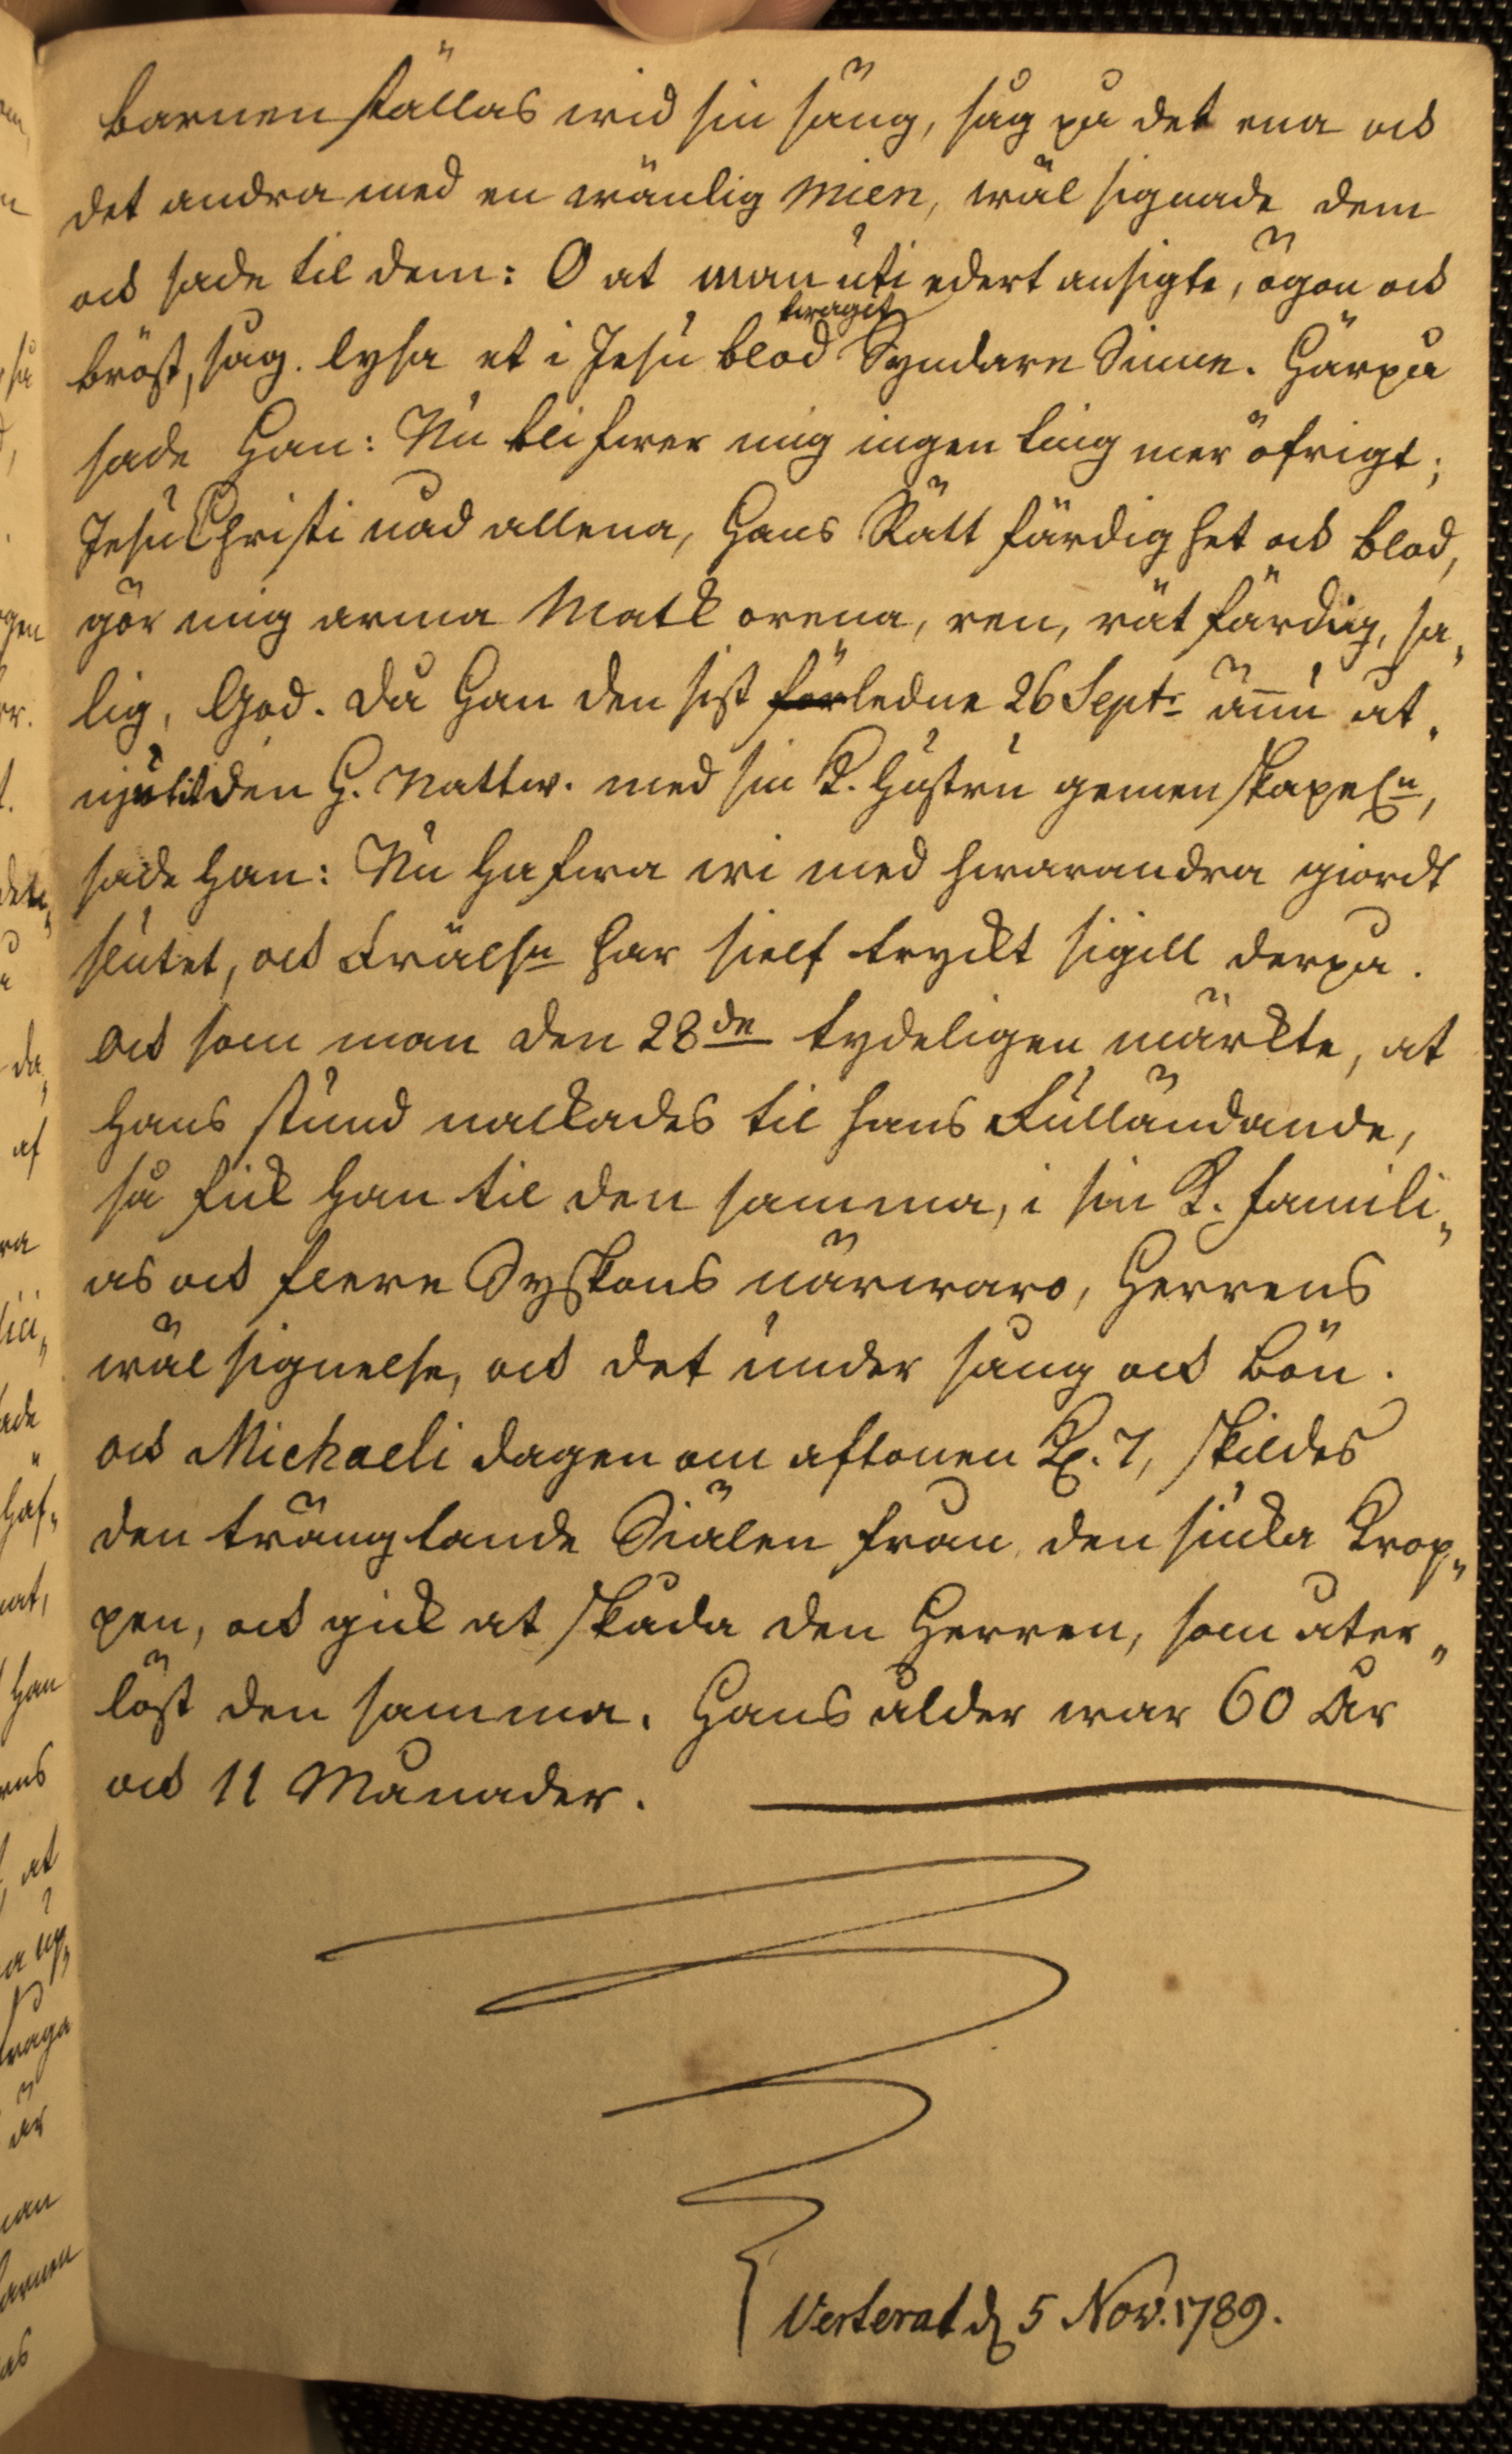 barnen ställas wid sin säng, såg på det ena och
det andra med en wänlig mien, wäl signade dem
och sade til dem: O at man uti edert ansigte, ögon och
bröst, såg. lysa et i Jesu blod twaget Syndare Sinne. Härpå
sade Han: Nu blifwer mig ingen ting mer öfrigt;
Jesu Christi nåd allena, Hans Rättfärdighet och blod,
gör mig arma Matk orena, ren, rätfärdig, sa„
lig, God. Då Han den sist förledne 26 Sept: ännu åt„
niutit den H. Nattw. med sin K. Hustru gemenskapeln,
sade Han: Nu hafwa wi med hwarandra giordt
slutet, och Frälsn har sielf tryckt sigill derpå.
och som man den 28de tydeligen märkte, at
Hans stund nalkades til hans Fulländande,
så fick Han til den samma, i sin K. famili„
as och flere Syskons närwaro, Herrens
wälsignelse, och det under sång och Bön.
och Michaeli dagen om aftonen Kl. 7, skildes
den trängtande Siälen från den siuka Krop„
pen, och gick at skåda den Herren, som åter„
löst den samma. Hans ålder war 60 År
och 11 Månader.
Verterat d 5 Nov. 1789.